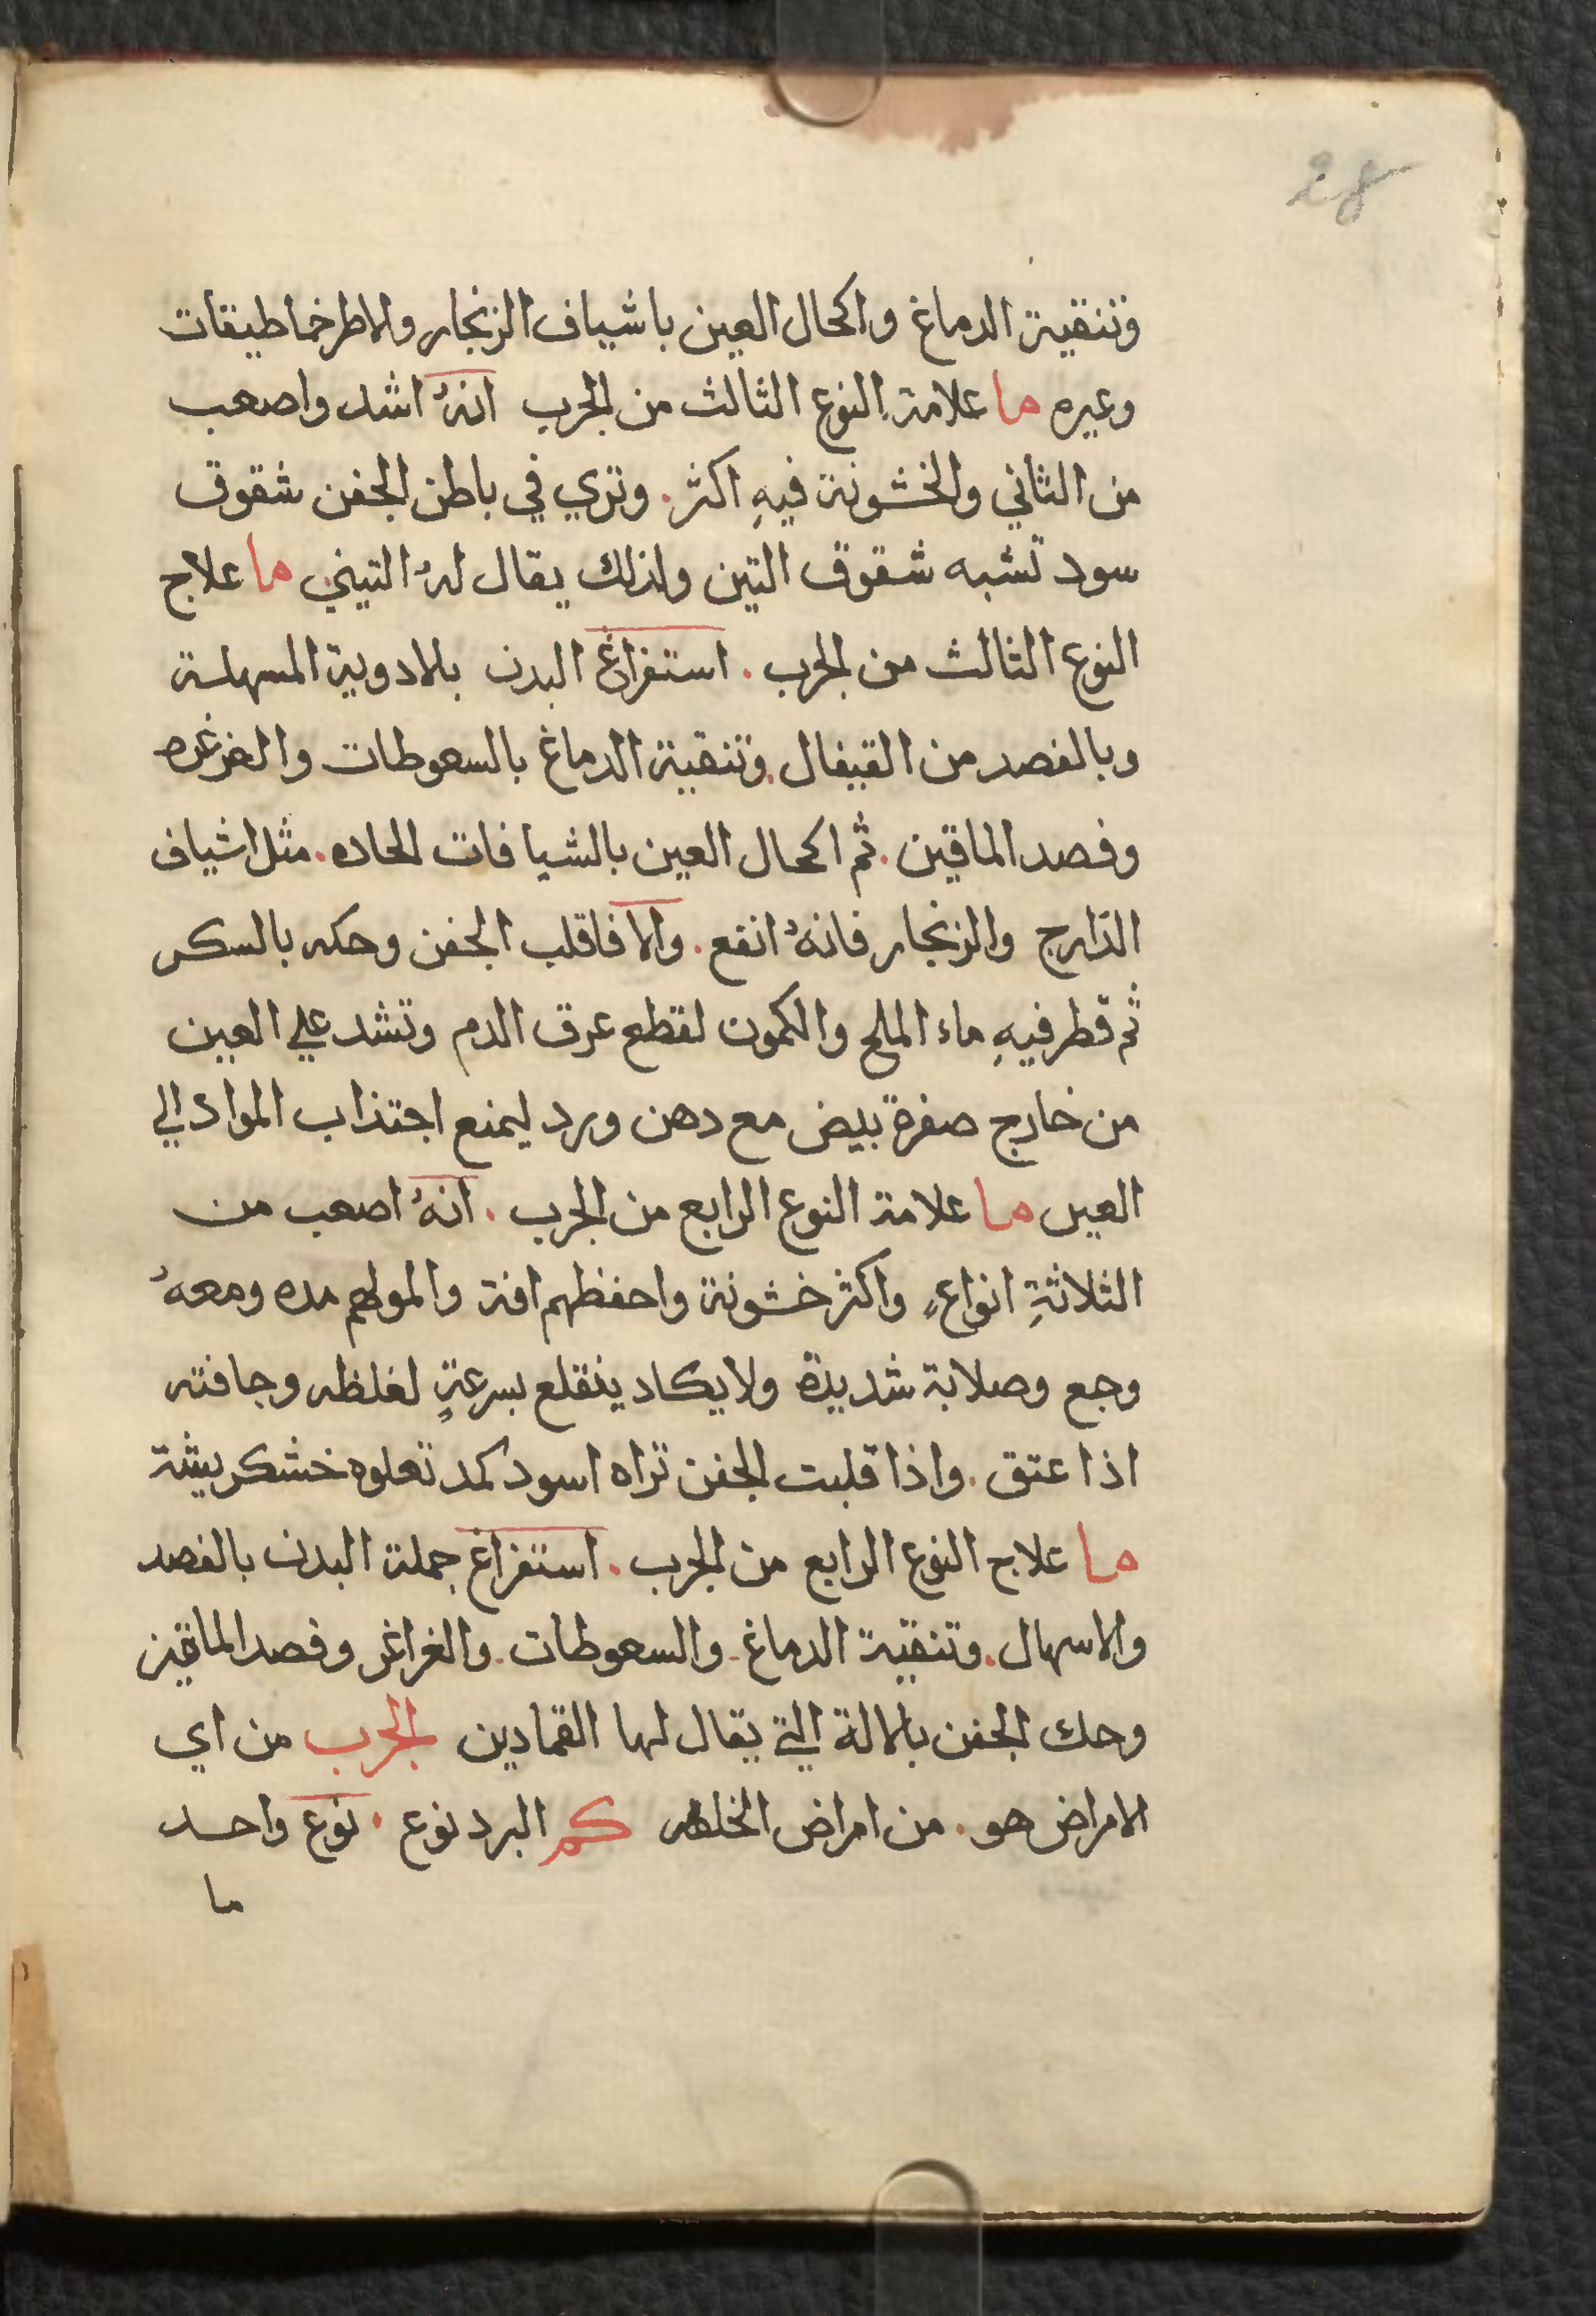 28
وتنقية الدماغ واكحال العين باشياف الزنجار والاطرخماطيقات
وغيره ما علامة النوع الثالث من الجرب انهُ اشد واصعب
من الثاني والخشونة فيهِ اكثر. وتري في باطن الجفن شقوق
سود تشبه شقوق التين ولذلك يقال لهُ التيني ما علاج
النوع الثالث من الجرب. استفراغ البدن بلادوية المسهلة
وبالفصد من القيفال. وتنقية الدماغ بالسعوطات والغرغره
وفصد الماقين. ثم اكحال العين بالشيافات الحاده. مثل اشياف
الدّارج والزنجار فانهُ انفع. والا فاقلب الجفن وحكه بالسكر
ثم قطر فيهِ ماء الملح والكمون لقطع عرق الدم وتشد علي العين
من خارج صفرة بيض مع دهن ورد ليمنع اجتذاب المواد الي
العين ما علامة النوع الرابع من الجرب. انهُ اصعب من
الثلاثةِ انواعٍ واكثر خشونة واحفظهم افة والمولهم مده ومعهُ
وجع وصلابة شديدة ولا يكاد ينقلع بسرعةٍ لغلظه وجافته
اذا عتق. واذا قلبت الجفن تراه اسود كمد تعلوه خشكريشة
ما علاج النوع الرابع من الجرب. استفراغ جملة البدن بالفصد
والاسهال. وتنقية الدماغ. والسعوطات. والغراغر وفصد الماقين
وحك الجفن بالالة التي يقال لها القمادين الجرب من اي
الامراض هو. من امراض الخلقه كم البرد نوع. نوع واحد
ما